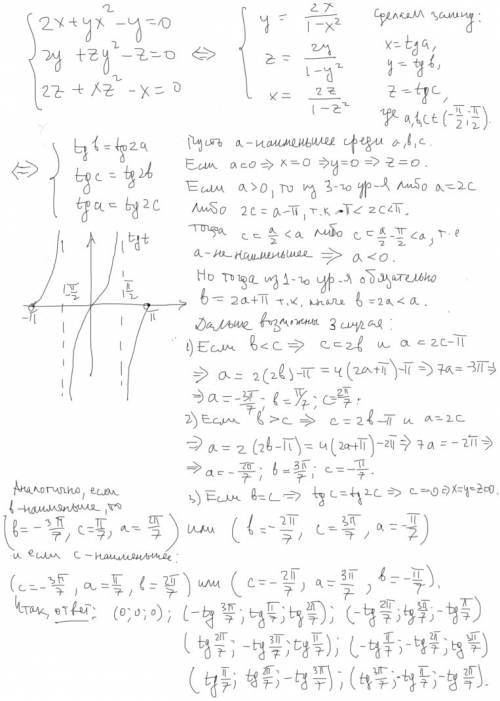 2x+yx²-y=0
2y+zy²-z=0
2z+xz²-x=0
⇔
y = 2x/(1-x²)
z = 2y/(1-y²)
x = 2z/(1-z²)
сделаем замену:
x=tga,
y=tgb,
z=tgc,
где a,b,c∈(-π/2;π/2)
⇔
tgb=tg2a
tgc=tg2b
tga=tg2c
Пусть a-наименьшее среди a,b,c.
Если a=0⇒x=0⇒y=0⇒z=0.
Если a>0, то из 3-го ур-я либо a=2c
либо 2c=a-π, т.к. -π<2c<π.
Тогда c=a/2<a либо c=a/2-π/2<a, т.е
a-не наименьшее ⇒ a<0.
Но тогда из 1-го ур-я обязательно
b=2a+π т.к. иначе b=2a<a.
Дальше возможны 3 случая:
1) Если b<c ⇒ c=2b и a=2c-π
⇒ a=2(2b)-π=4(2a+π)-π⇒7a=-3π⇒
⇒a=-3π/7; b=π/7; c=2π/7.
2) Если b>c ⇒ c=2b-π и a=2c
⇒a=2(2b-π)=4(2a+π)-2π⇒7a=-2π⇒
⇒a=-2π/7; b=3π/7; c=-π/7.
3) Если b=c⇒tgc=tg2c⇒c=0⇒x=y=z=0.
tgt
-π
-π/2
π/2
π
Аналогично, если
b-наименьшее, то
(b=-3π/7, c=π/7, a=2π/7) или (b=-2π/7, c=3π/7, a=-π/7)
и если c-наименьшее:
(c=-3π/7, a=π/7, b=2π/7) или (c=-2π/7, a=3π/7, b=-π/7).
Итак, ответ: (0;0;0); (-tg3π/7; tgπ/7; tg2π/7); (-tg2π/7; tg3π/7; -tgπ/7)
(tg2π/7; -tg3π/7; tgπ/7); (-tgπ/7; -tg2π/7; tg3π/7)
(tgπ/7; tg2π/7; -tg3π/7); (tg3π/7; -tgπ/7; -tg2π/7).